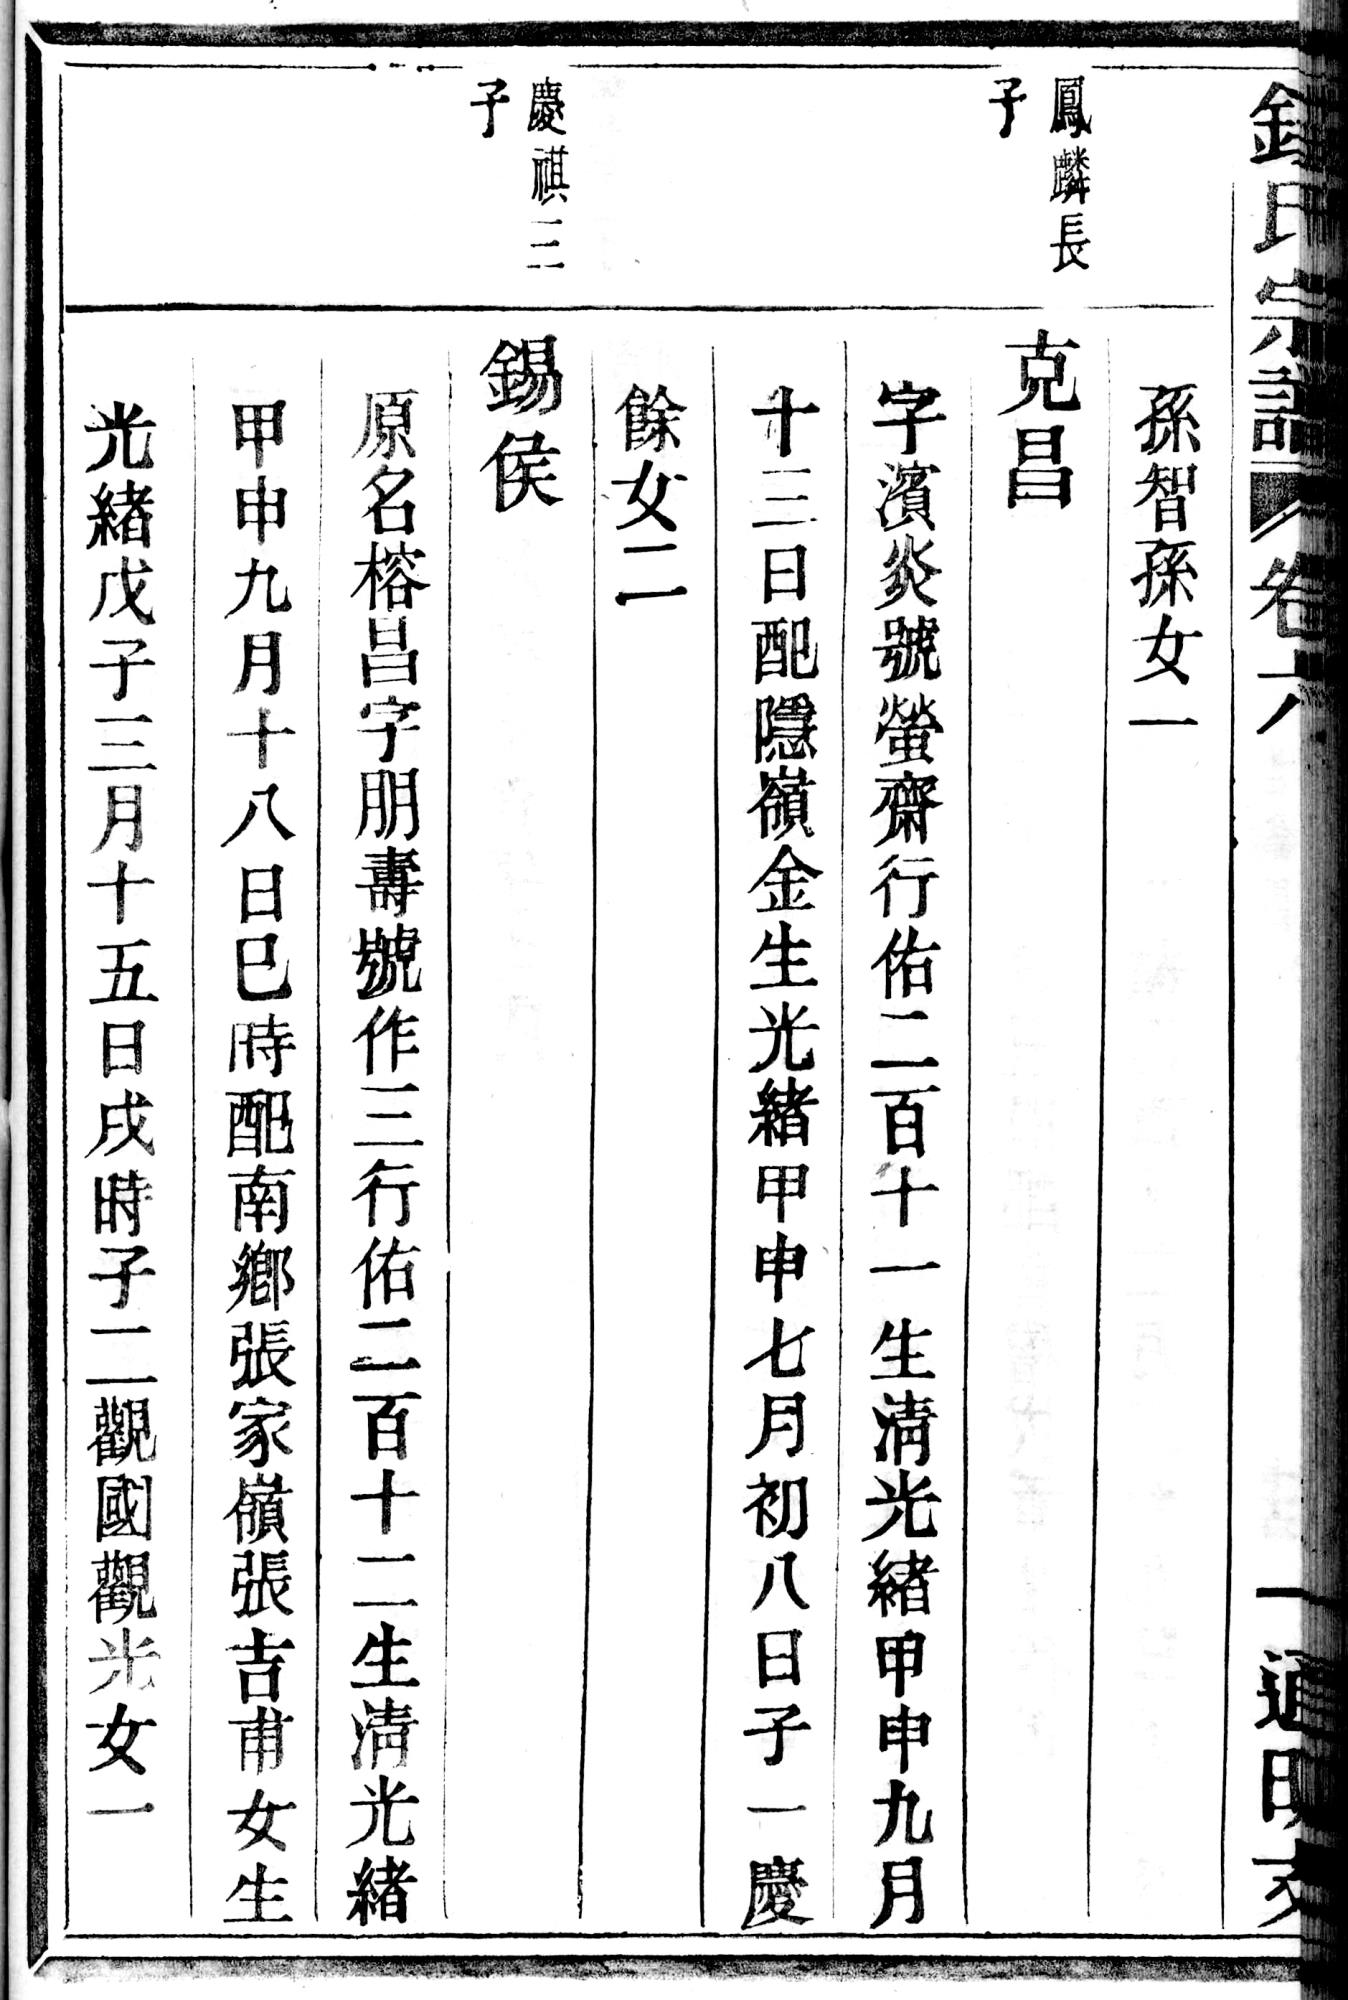 氏宗譜 卷六 一 通明支
孫智孫女一
鳳麟長
子
克昌
字濱炎號螢齋行佑二百十一生清光緒甲申九月
十三日配隱嶺金生光緒甲申七月初八日子一慶
餘女二
慶祺三
子
錫侯
原名榕昌字朋壽號作三行佑二百十二生清光緒
甲申九月十八日巳時配南鄉張家嶺張吉甫女生
光緒戊子三月十五日戌時子二觀國觀光女一